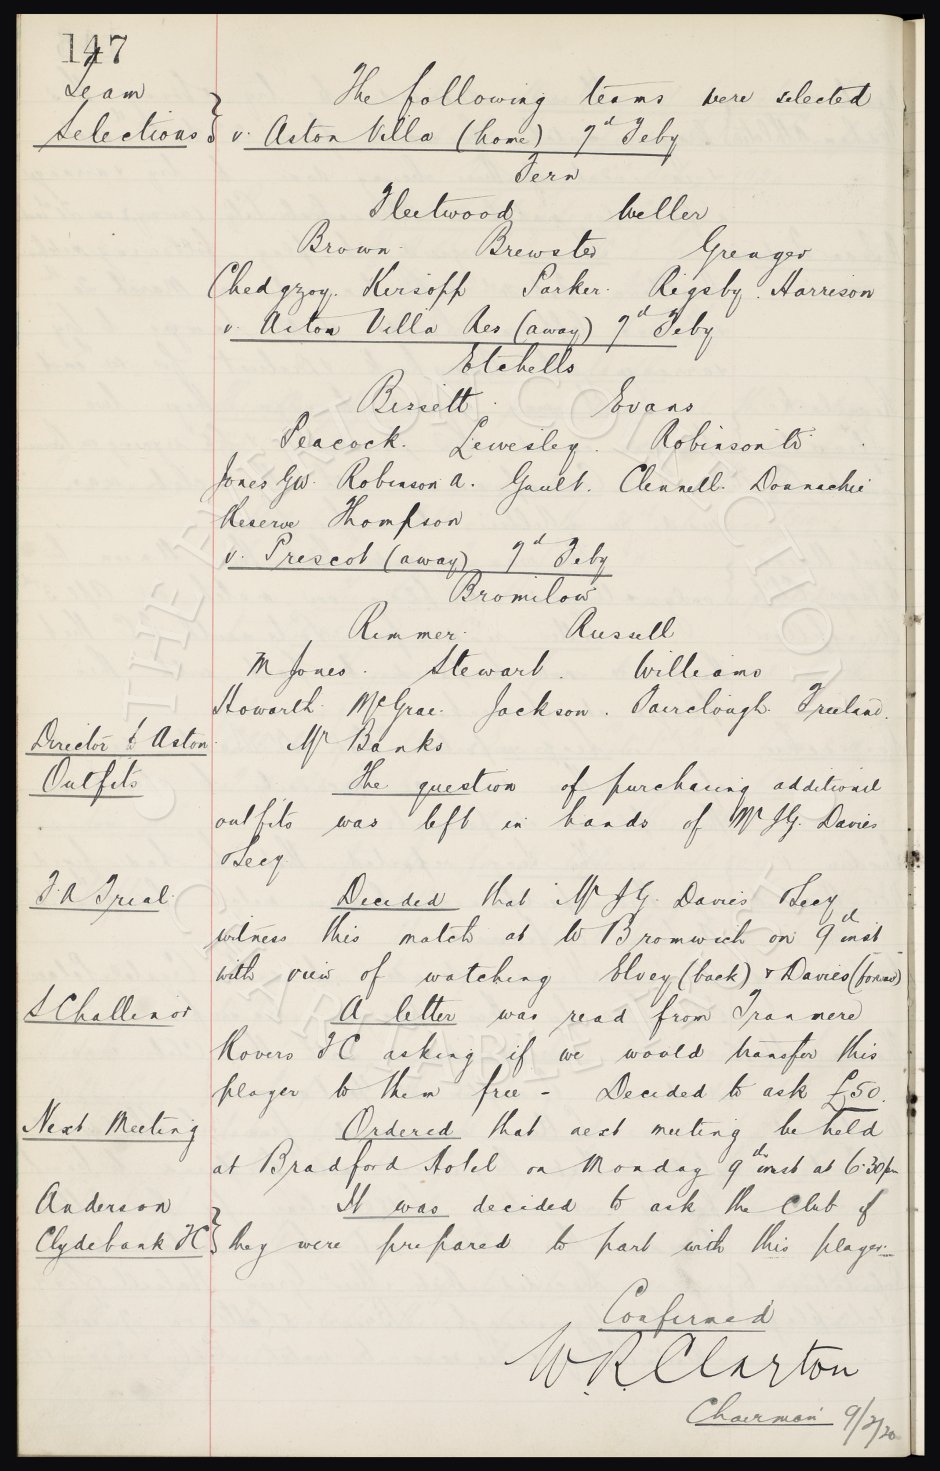 147
Team
Selections
The following teams were selected
v. Aston Villa (home) 7d Feby
Fern
Fleetwood Weller
Brown Brewster Grenyer
Chedgzoy. Kirsopp Parker. Rigsby. Harrison
v. Aston Villa Res (away) 7d Feby
Etchells
Bissett Evans
Peacock. Lewesley. Robinson W
Jones GW. Robinson A. Gault. Clennell. Donnachie
Reserve Thompson
v. Prescot (away) 7d Feby
Bromilow
Rimmer. Russell
M Jones. Stewart. Williams
Howarth McGrae. Jackson. Fairclough. Freeland.
Director to Aston Mr Banks
Outfits The question of purchasing additional
outfits was left in hands of Mr JG. Davies
& Secy
F.A Trial. Decided that Mr JG. Davies & Secy
witness this match at W Bromwich on 9d inst
with view of watching Elvey (back) & Davies (forward)
S Challinor A letter was read from Tranmere
Rovers FC asking if we would transfer this
player to them free - Decided to ask £50.
Next Meeting Ordered that next meeting be held
at Bradford Hotel on Monday 9th inst at 6.30pm
Anderson
Clydebank FC
It was decided to ask the Club if
they were prepared to part with this player.
Confirmed
W.R. Clayton
Chairman 9/2/20
THE EVERTON COLLECTION
CHARITABLE TRUST